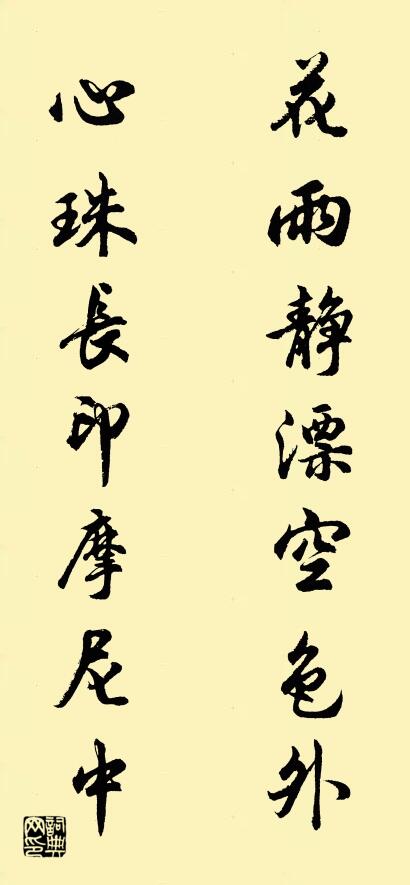 花雨静漂空色外
心珠長印摩尼中
詞典网印